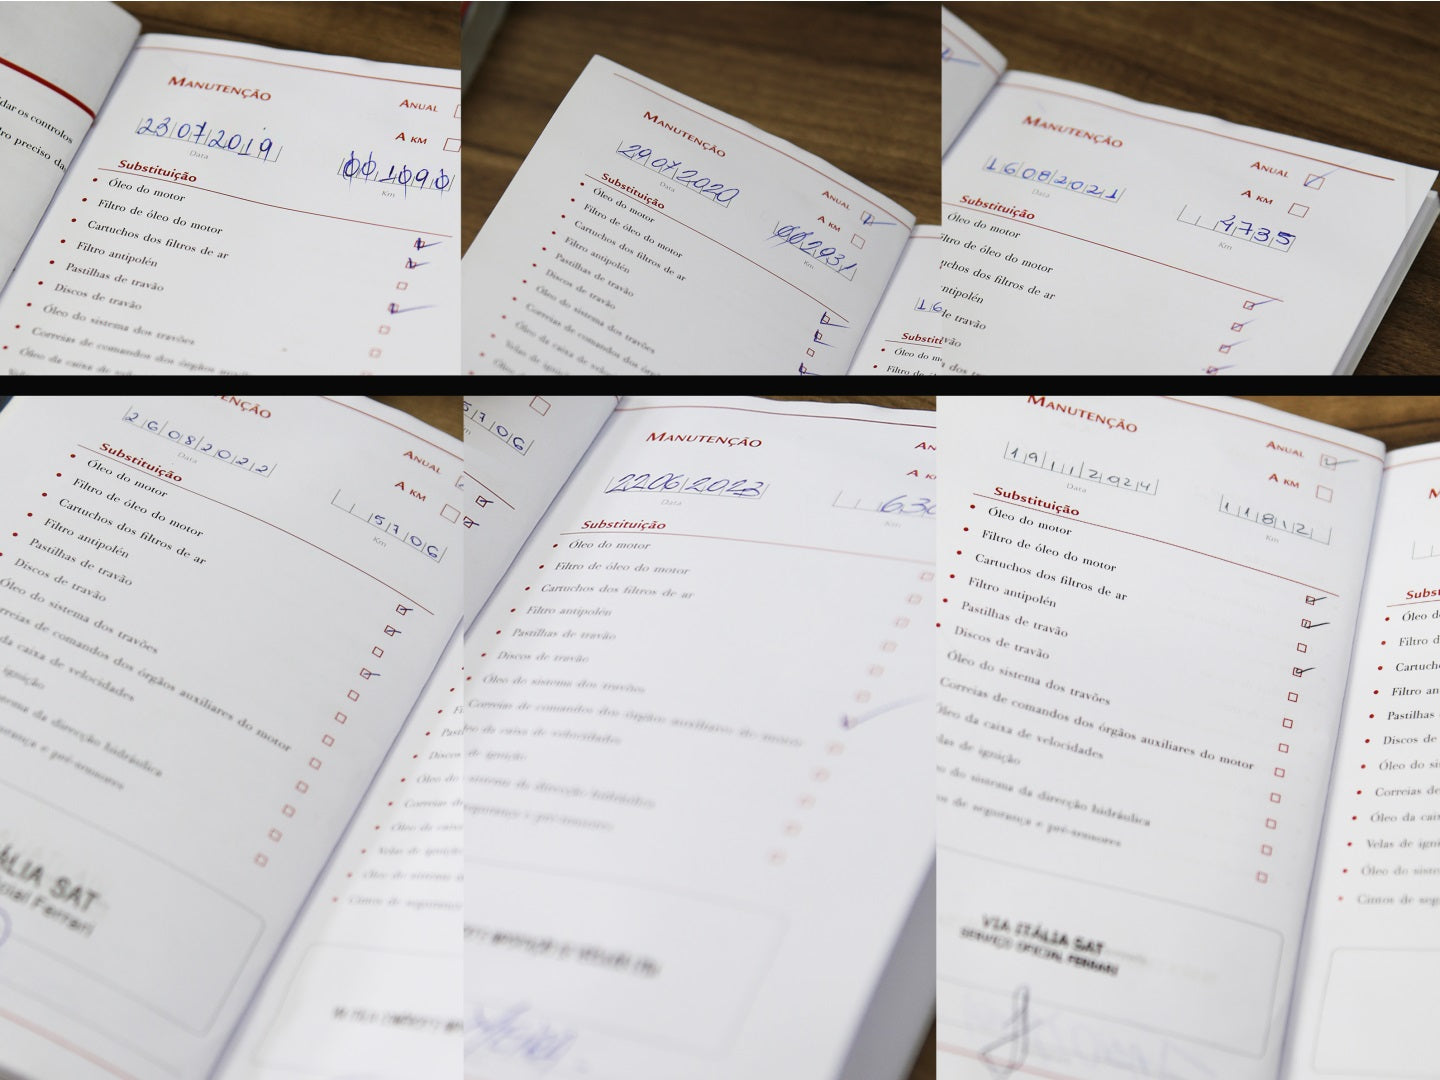 dar os controlos
ro preciso da
MANUTENÇÃO
ANUAL
23072019
Data
A KM
001090
Km
Substituição
Óleo do motor
Filtro de óleo do motor
Cartuchos dos filtros de ar
Filtro antipolén
Pastilhas de travão
Discos de travão
Óleo do sistema dos travões
Correias de comandos dos órgãos
Óleo da caixa de
MANUTENÇÃO
29072020
Data
ANUAL
A KM
002931
Km
Substituição
Óleo do motor
Filtro de óleo do motor
Cartuchos dos filtros de ar
Filtro antipolén
Pastilhas de travão
Discos de travão
Óleo do sistema dos travões
Correias de comandos dos órgãos
Óleo da caixa de
Velas de ignição
16
Óleo do m
MANUTENÇÃO
ANUAL
16082021
A KM
4735
Km
Substituição
Óleo do motor
iltro de óleo do motor
uchos dos filtros de ar
ntipolén
de travão
vão
NÇÃO
26082022
Data
ANUAL
A KM
5706
Km
Substituição
Óleo do motor
Filtro de óleo do motor
Cartuchos dos filtros de ar
Filtro antipolén
Pastilhas de travão
Discos de travão
Óleo do sistema dos travões
rreias de comandos dos órgãos auxiliares do motor
da caixa de velocidades
ignição
ema da direcção hidráulica
urança e pré-tensores
ÁLIA SAT
cial Ferrari
5706
Km
MANUTENÇÃO
AN
22062023
Data
A K
630
Km
Substituição
Óleo do motor
Filtro de óleo do motor
Cartuchos dos filtros de ar
Filtro antipolén
Pastilhas de travão
Discos de travão
Óleo do sistema dos travões
Correias de comandos dos órgãos auxiliares do motor
da caixa de velocidades
de ignição
sistema da direcção hidráulica
segurança e pré-tensores
MANUTENÇÃO
ANUAL
19112024
Data
A KM
11812
Km
Substituição
Óleo do motor
Filtro de óleo do motor
Cartuchos dos filtros de ar
Filtro antipolén
Pastilhas de travão
Discos de travão
Óleo do sistema dos travões
Correias de comandos dos órgãos auxiliares do motor
Óleo da caixa de velocidades
las de ignição
do sistema da direcção hidráulica
os de segurança e pré-tensores
VIA ITÁLIA SAT
SERVIÇO OFICIAL FERRARI
M
Subst
Óleo d
Filtro d
Cartuch
Filtro an
Pastilhas
Discos de
Óleo do si
Correias de
Óleo da cai
Velas de igni
Óleo do siste
Cintos de seg